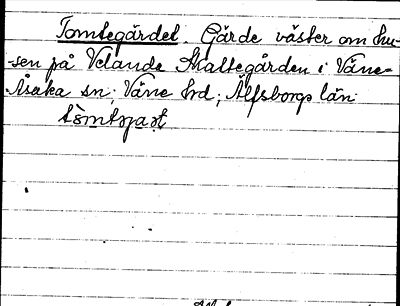 Tomtegärdet. Gärde väster om hu-
sen på Velanda Skattegården i Väne-
Åsaka sn; Väne hrd; Älfsborgs län.